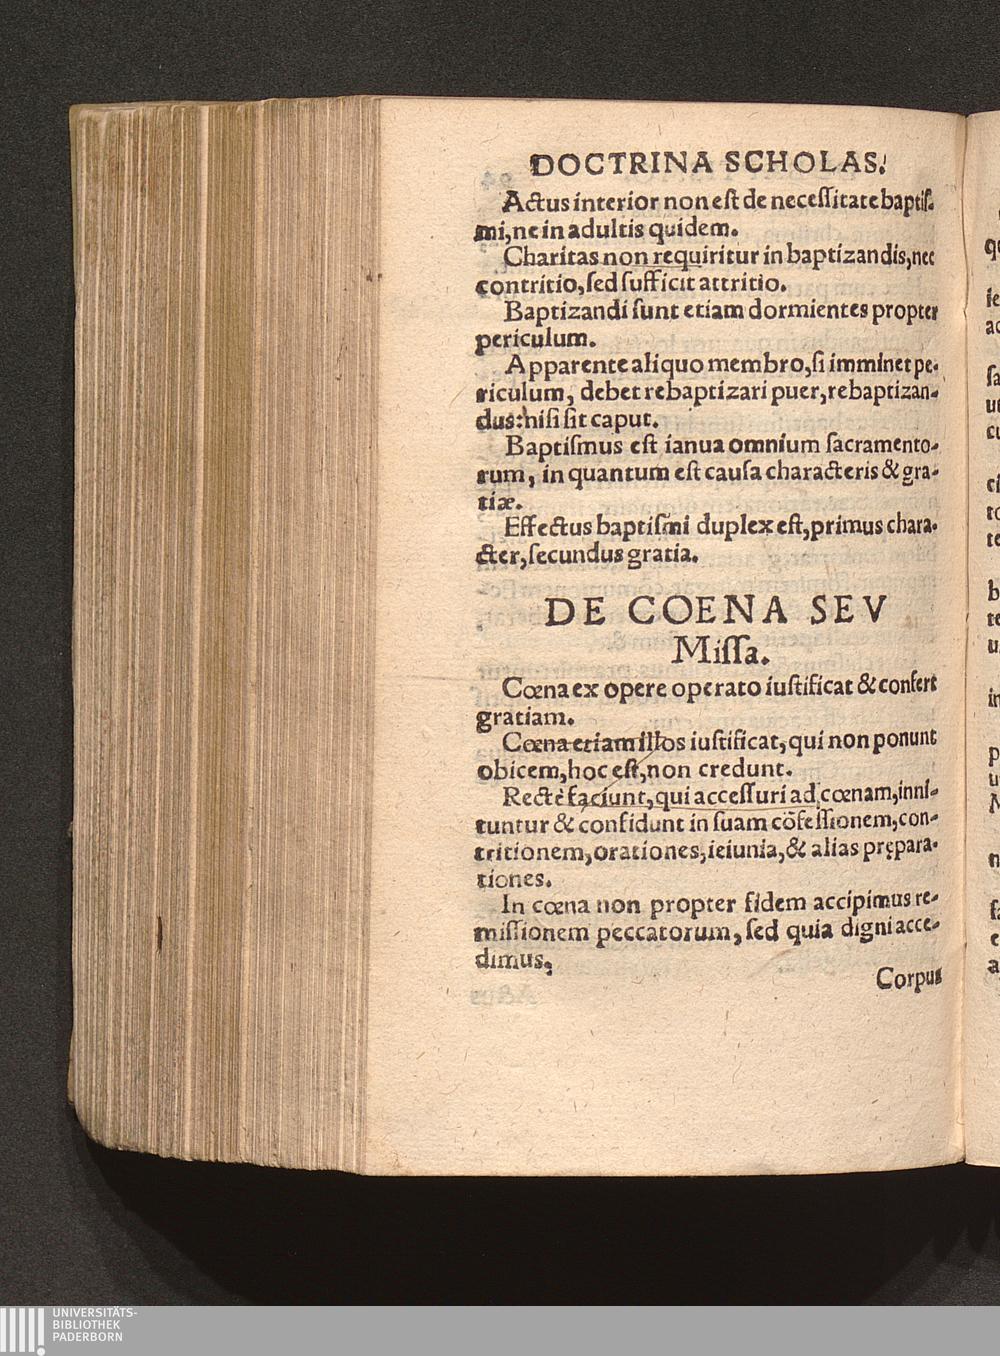 DOCTRINA SCHOLAS.
Actus interior non eſt de neceſſitate baptiſ-
mi, ne in adultis quidem.
Charitas non requiritur in baptizandis, nec
contritio, ſed ſufficit attritio.
Baptizandi ſunt etiam dormientes propter
periculum.
Apparente aliquo membro, ſi imminet pe-
riculum, debet rebaptizari puer, rebaptizan-
dus: niſi ſit caput.
Baptiſmus eſt ianua omnium ſacramento-
rum, in quantum eſt cauſa characteris & gra-
tiæ.
Effectus baptiſmi duplex eſt, primus chara-
cter, ſecundus gratia.
DE COENA SEV
Miſſa.
Cœna ex opere operato iuſtificat & confert
gratiam.
Cœna etiam illos iuſtificat, qui non ponunt
obicem, hoc eſt, non credunt.
Rectè faciunt, qui acceſſuri ad cœnam, inni-
tuntur & confidunt in ſuam cõfeſſionem, con-
tritionem, orationes, ieiunia, & alias prępara-
tiones.
In cœna non propter fidem accipimus re-
miſſionem peccatorum, ſed quia digni acce-
dimus.
Corpus
UNIVERSITÄTS-
BIBLIOTHEK
PADERBORN